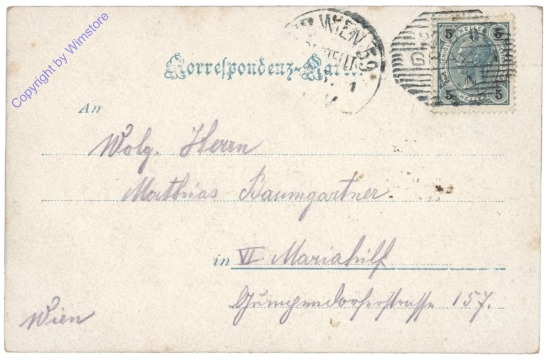 Copyright by Wimstore
WIEN 59
5 5
5 5
Correspondenz-Karte
An
Wolg. Herrn
Mathias Baumgartner.
in VI Mariahilf
Gumpendorferstrasse 157.
Wien